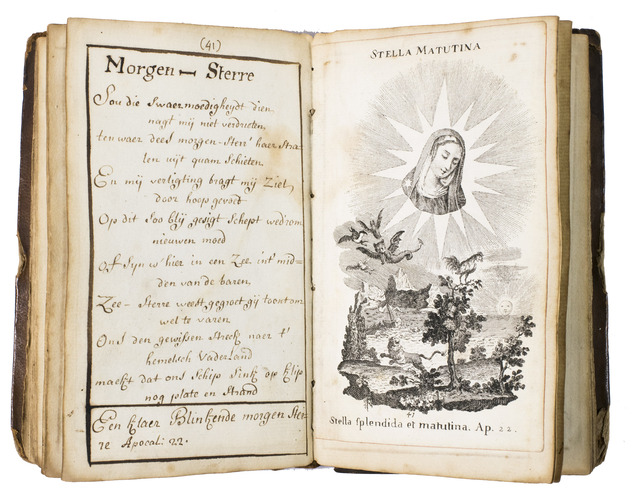 (41)
Morgen Sterre
Sou die swaermoedigheydt dien
nagt mij niet verdrieten,
ten waer dees morgen-Sterr' haer stra
len uijt quam schieten
En mij verligting bragt mij Ziel,
door hoop gevoet
Op dit soo blij gesigt schept wedrom
nieuwen moed
Of syn w' hier in een Zee int mid=
den van de baren,
Zee-Sterre weest gegroet gij toont om
wel te varen
Ons den gewissen streek naer t'
hemelsch Vaderland
maekt dat ons schip sink op klip
nog plate en Strand
Een klaer Blinkende morgen Ster
re Apocal: 22.
STELLA MATUTINA
41
Stella splendida et matutina. Ap. 22.